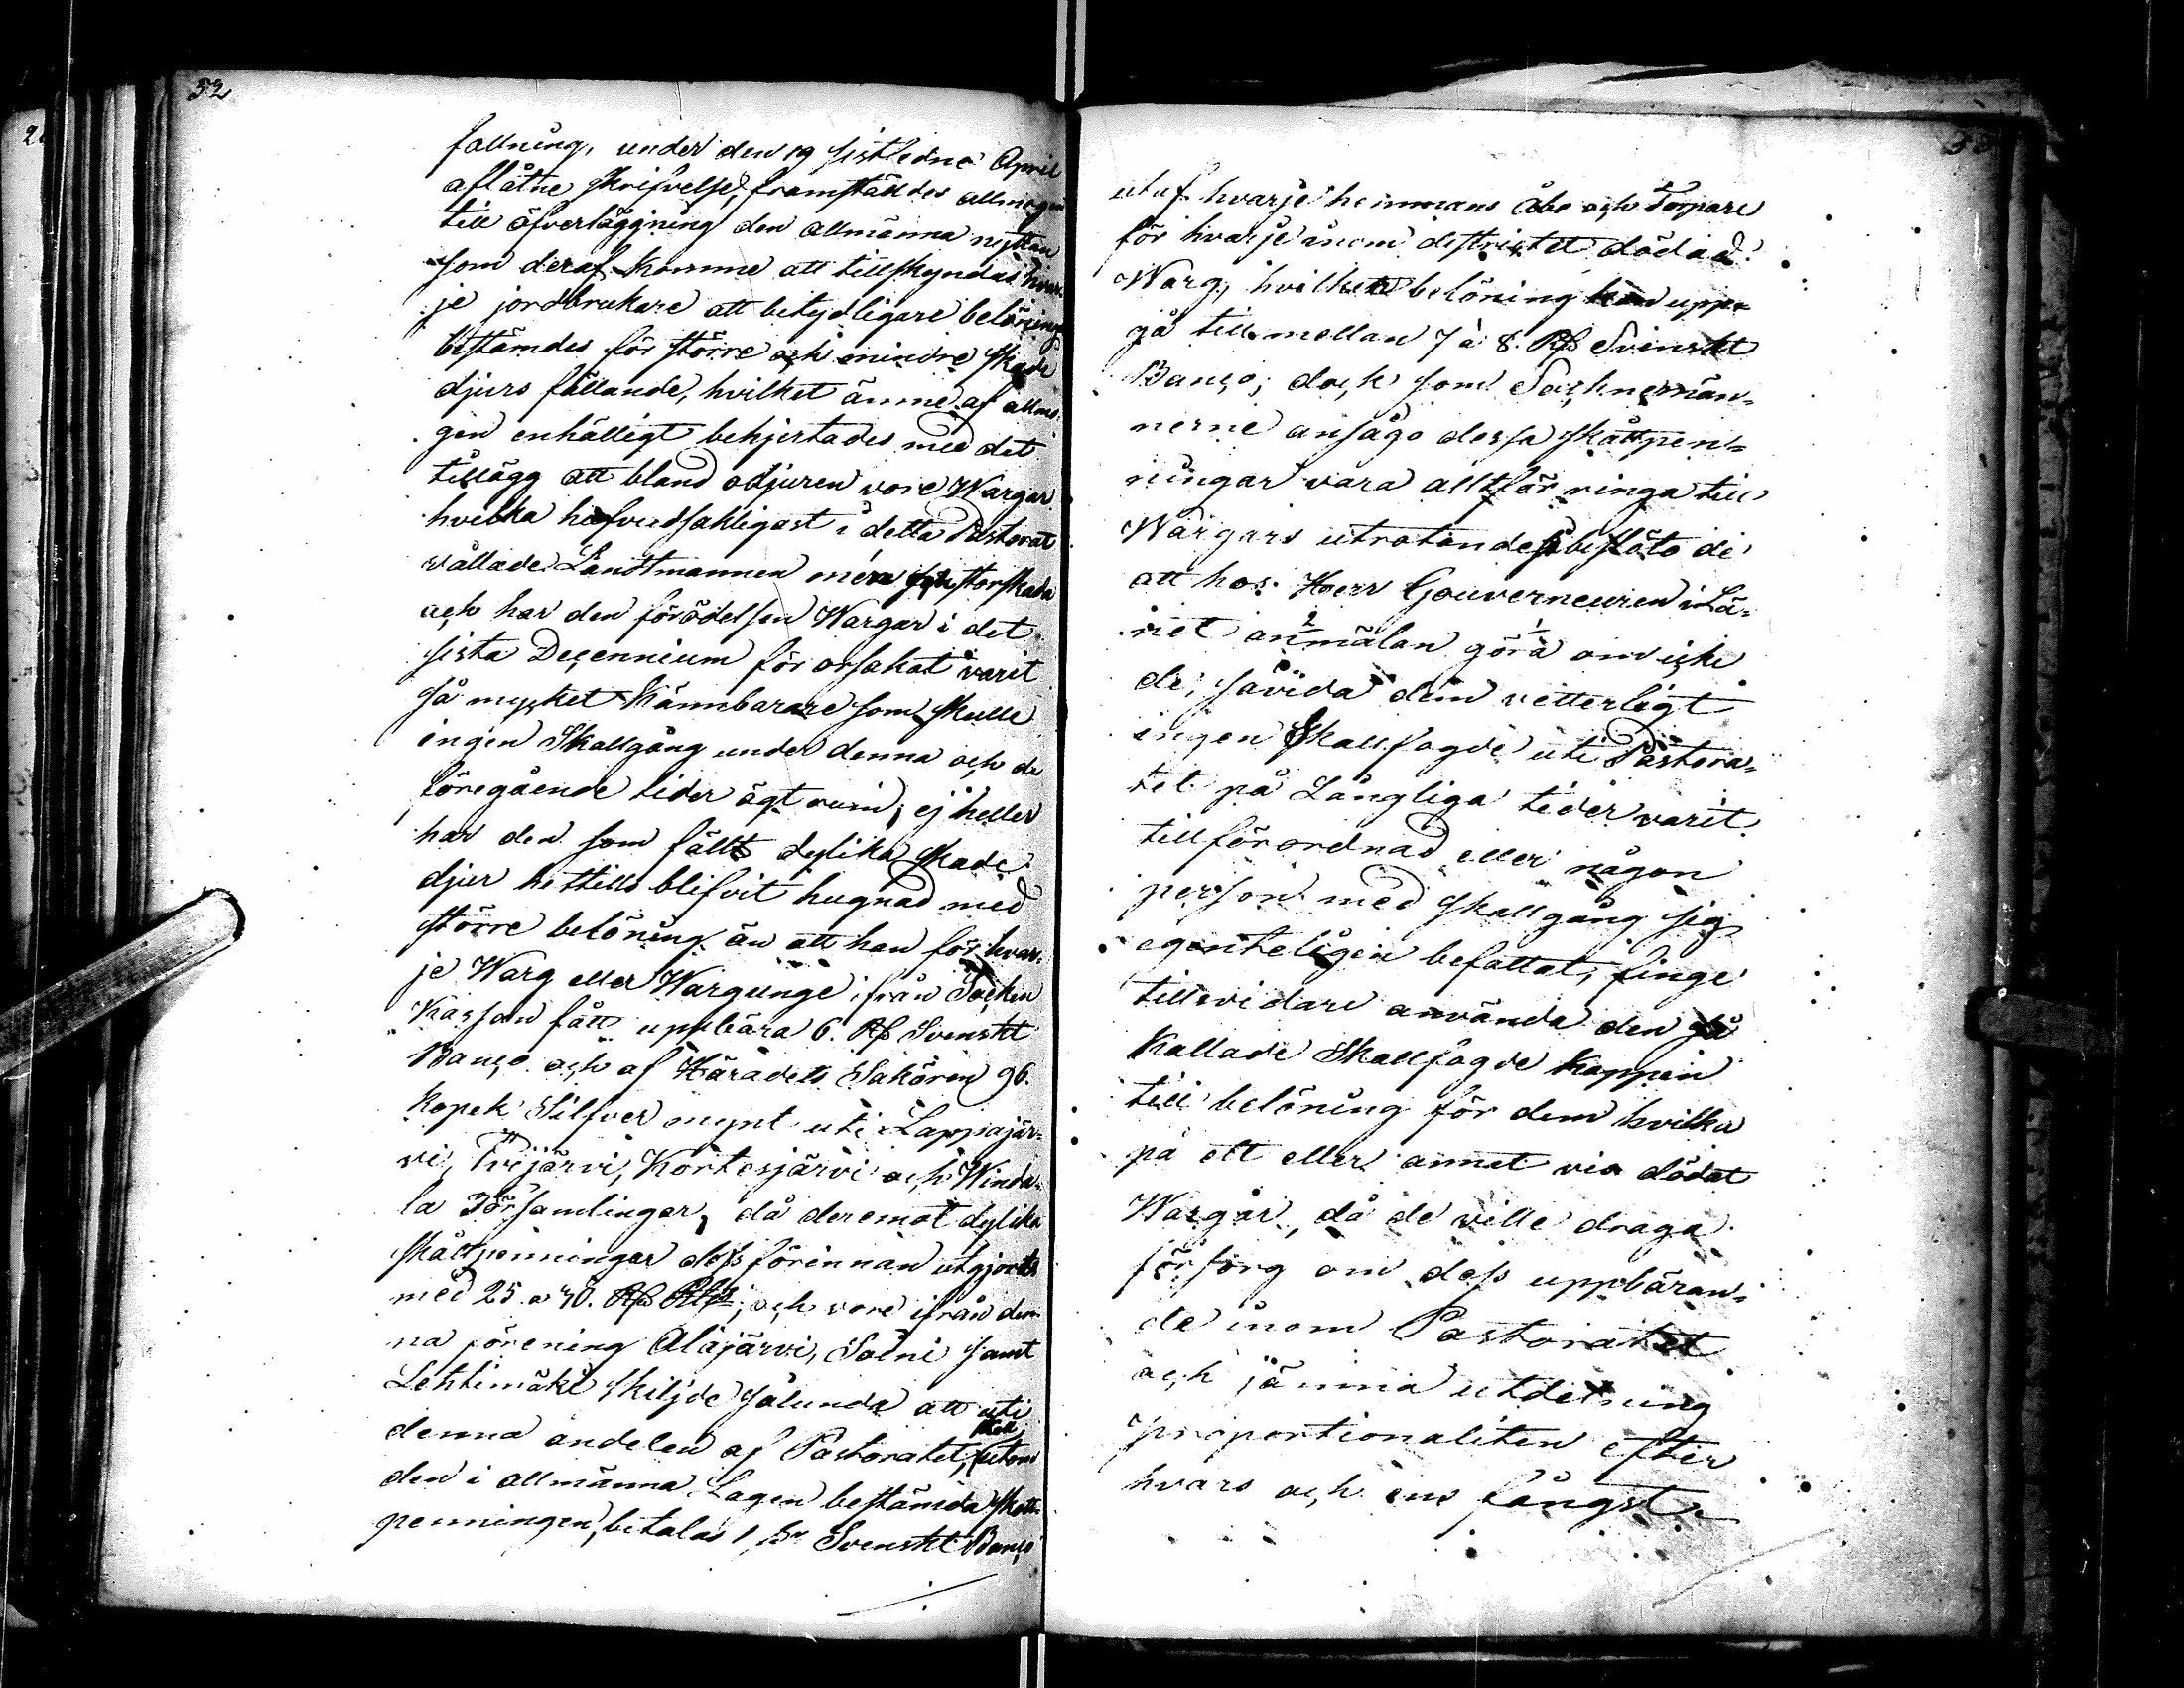 52
fallning, under den 19 sistledne April
aflåtne skrifvelse, framställdes allmogen
till öfverläggning den allmänna nyttan
som deraf komme att tillskyndas hvar-
je jordbrukare att betydligare belöning
bestämdes för större och mindre skade
djurs fällande, hvilket ämne af allmo-
gen enhälligt behjertades med det
tillägg att bland odjuren vore Wargar
hvilka hufvudsakligast i detta Pastorat
vållade Landtmannen mera stor skada
och har den förödelsen Wargar i det
sista Decennium för orsakat varit
så mycket kännbarare som skulle
ingen Skallgång under denna och de
föregående tider ägt rum; ej heller
har den som fällt dylika skade
djur hittills blifvit hugnad med
större belöning än att han för hvar-
je Warg eller Wargunge ifrån Socken
Kassan fått uppbära 6. Rß Svenskt
Banco och af Häradets Saköron 96.
kopek Silfver mynt uti Lappajär-
vi, Evijärvi, Kortesjärvi och Winda-
la Församlingar, då deremot dylika
skattpenningar dess förinnan utgjorts
med 25 a 30. Rß Rgs, och vore ifrån den-
na förening Alajärvi, Soini samt
Lehtimäki skiljde sålunda att uti
denna andelen af Pastoratet, skall utom
den i allmänna Lagen bestämda skott-
penningen, betalas 1 Sk Svenskt Banco
53
utaf hvarje hemmans Åbo och Torpare
för hvarje inom districtet dödad
Warg, hvilken belöning kan upp-
gå till mellan 7 à 8. Rß Svenskt
Banco; dock som Sochnemän-
nerne ansågo dessa skåttpen-
ningar vara alltför ringa till
Wargars utrotande, beslöto de
att hos Herr Gouverneuren i Lä-
net anmälan göra om icke
de, såvida dem vetterligt
ingen Skallfogde uti Pastora-
tet på Långliga tider varit
tillförordnad eller någon
person med skallgång sig
egenteligen befattat, finge
tillsvidare använda den så
kallade Skallfogde kappen
till belöning för dem hvilka
på ett eller annat vis dödat
Wargar, då de ville draga
försorg om dess uppbäran-
de inom Pastoratet
och jämna utdelning
proportionaliter efter
hvars och ens fångst.